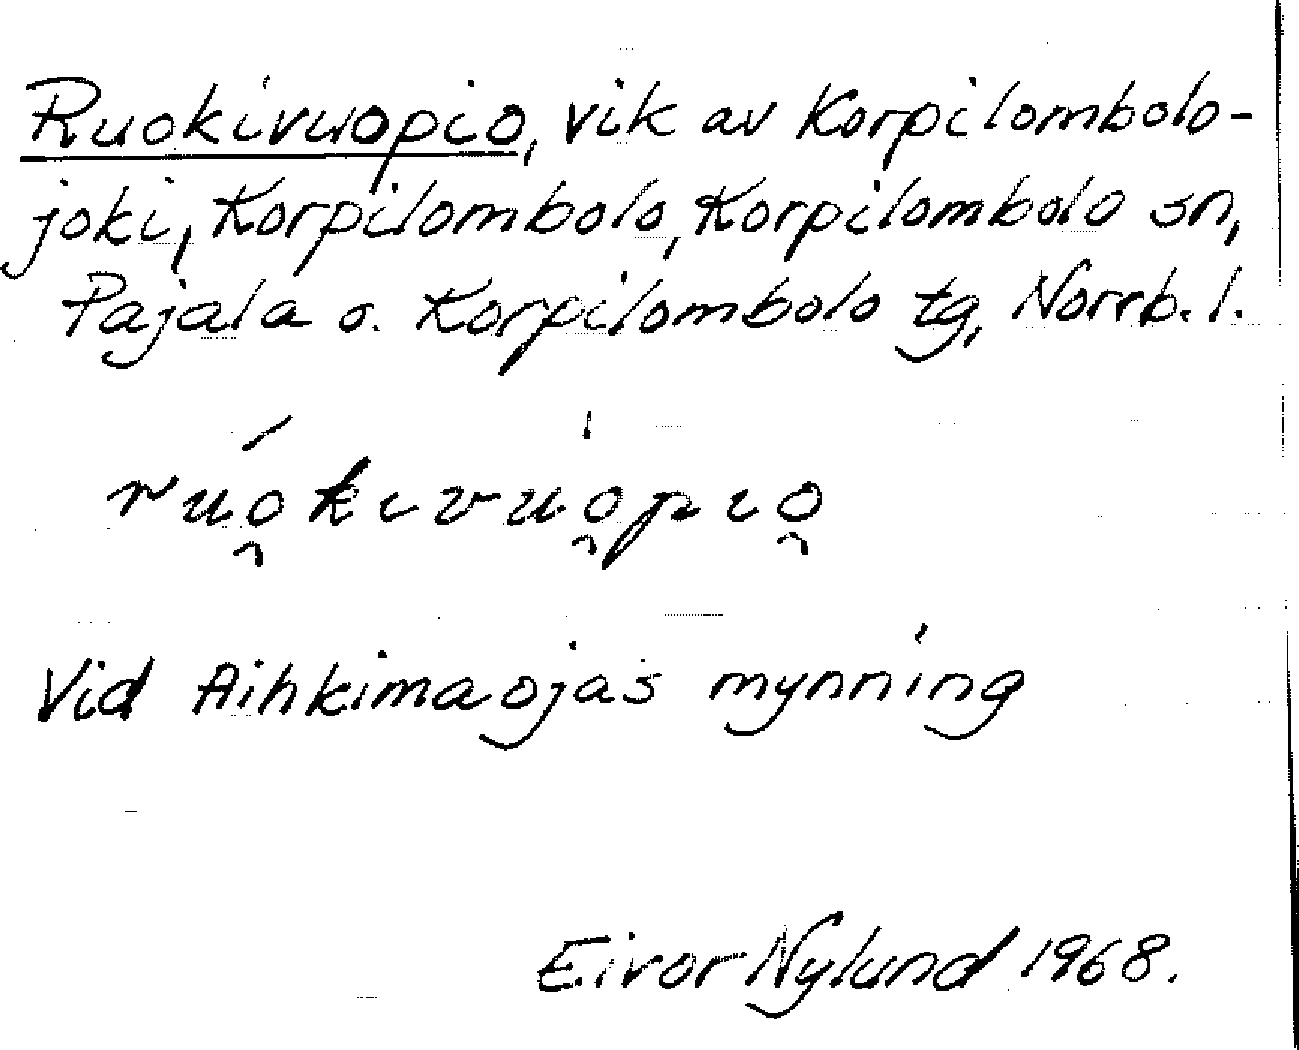 Ruokivuopio, vik av Korpilombolo-
joki, Korpilombolo, Korpilombolo sn,
Pajala o. Korpilombolo tg, Norrb. l.
rúo̯kivuo̯pio̯
Vid Aihkimaojas mynning
Eivor Nylund 1968.